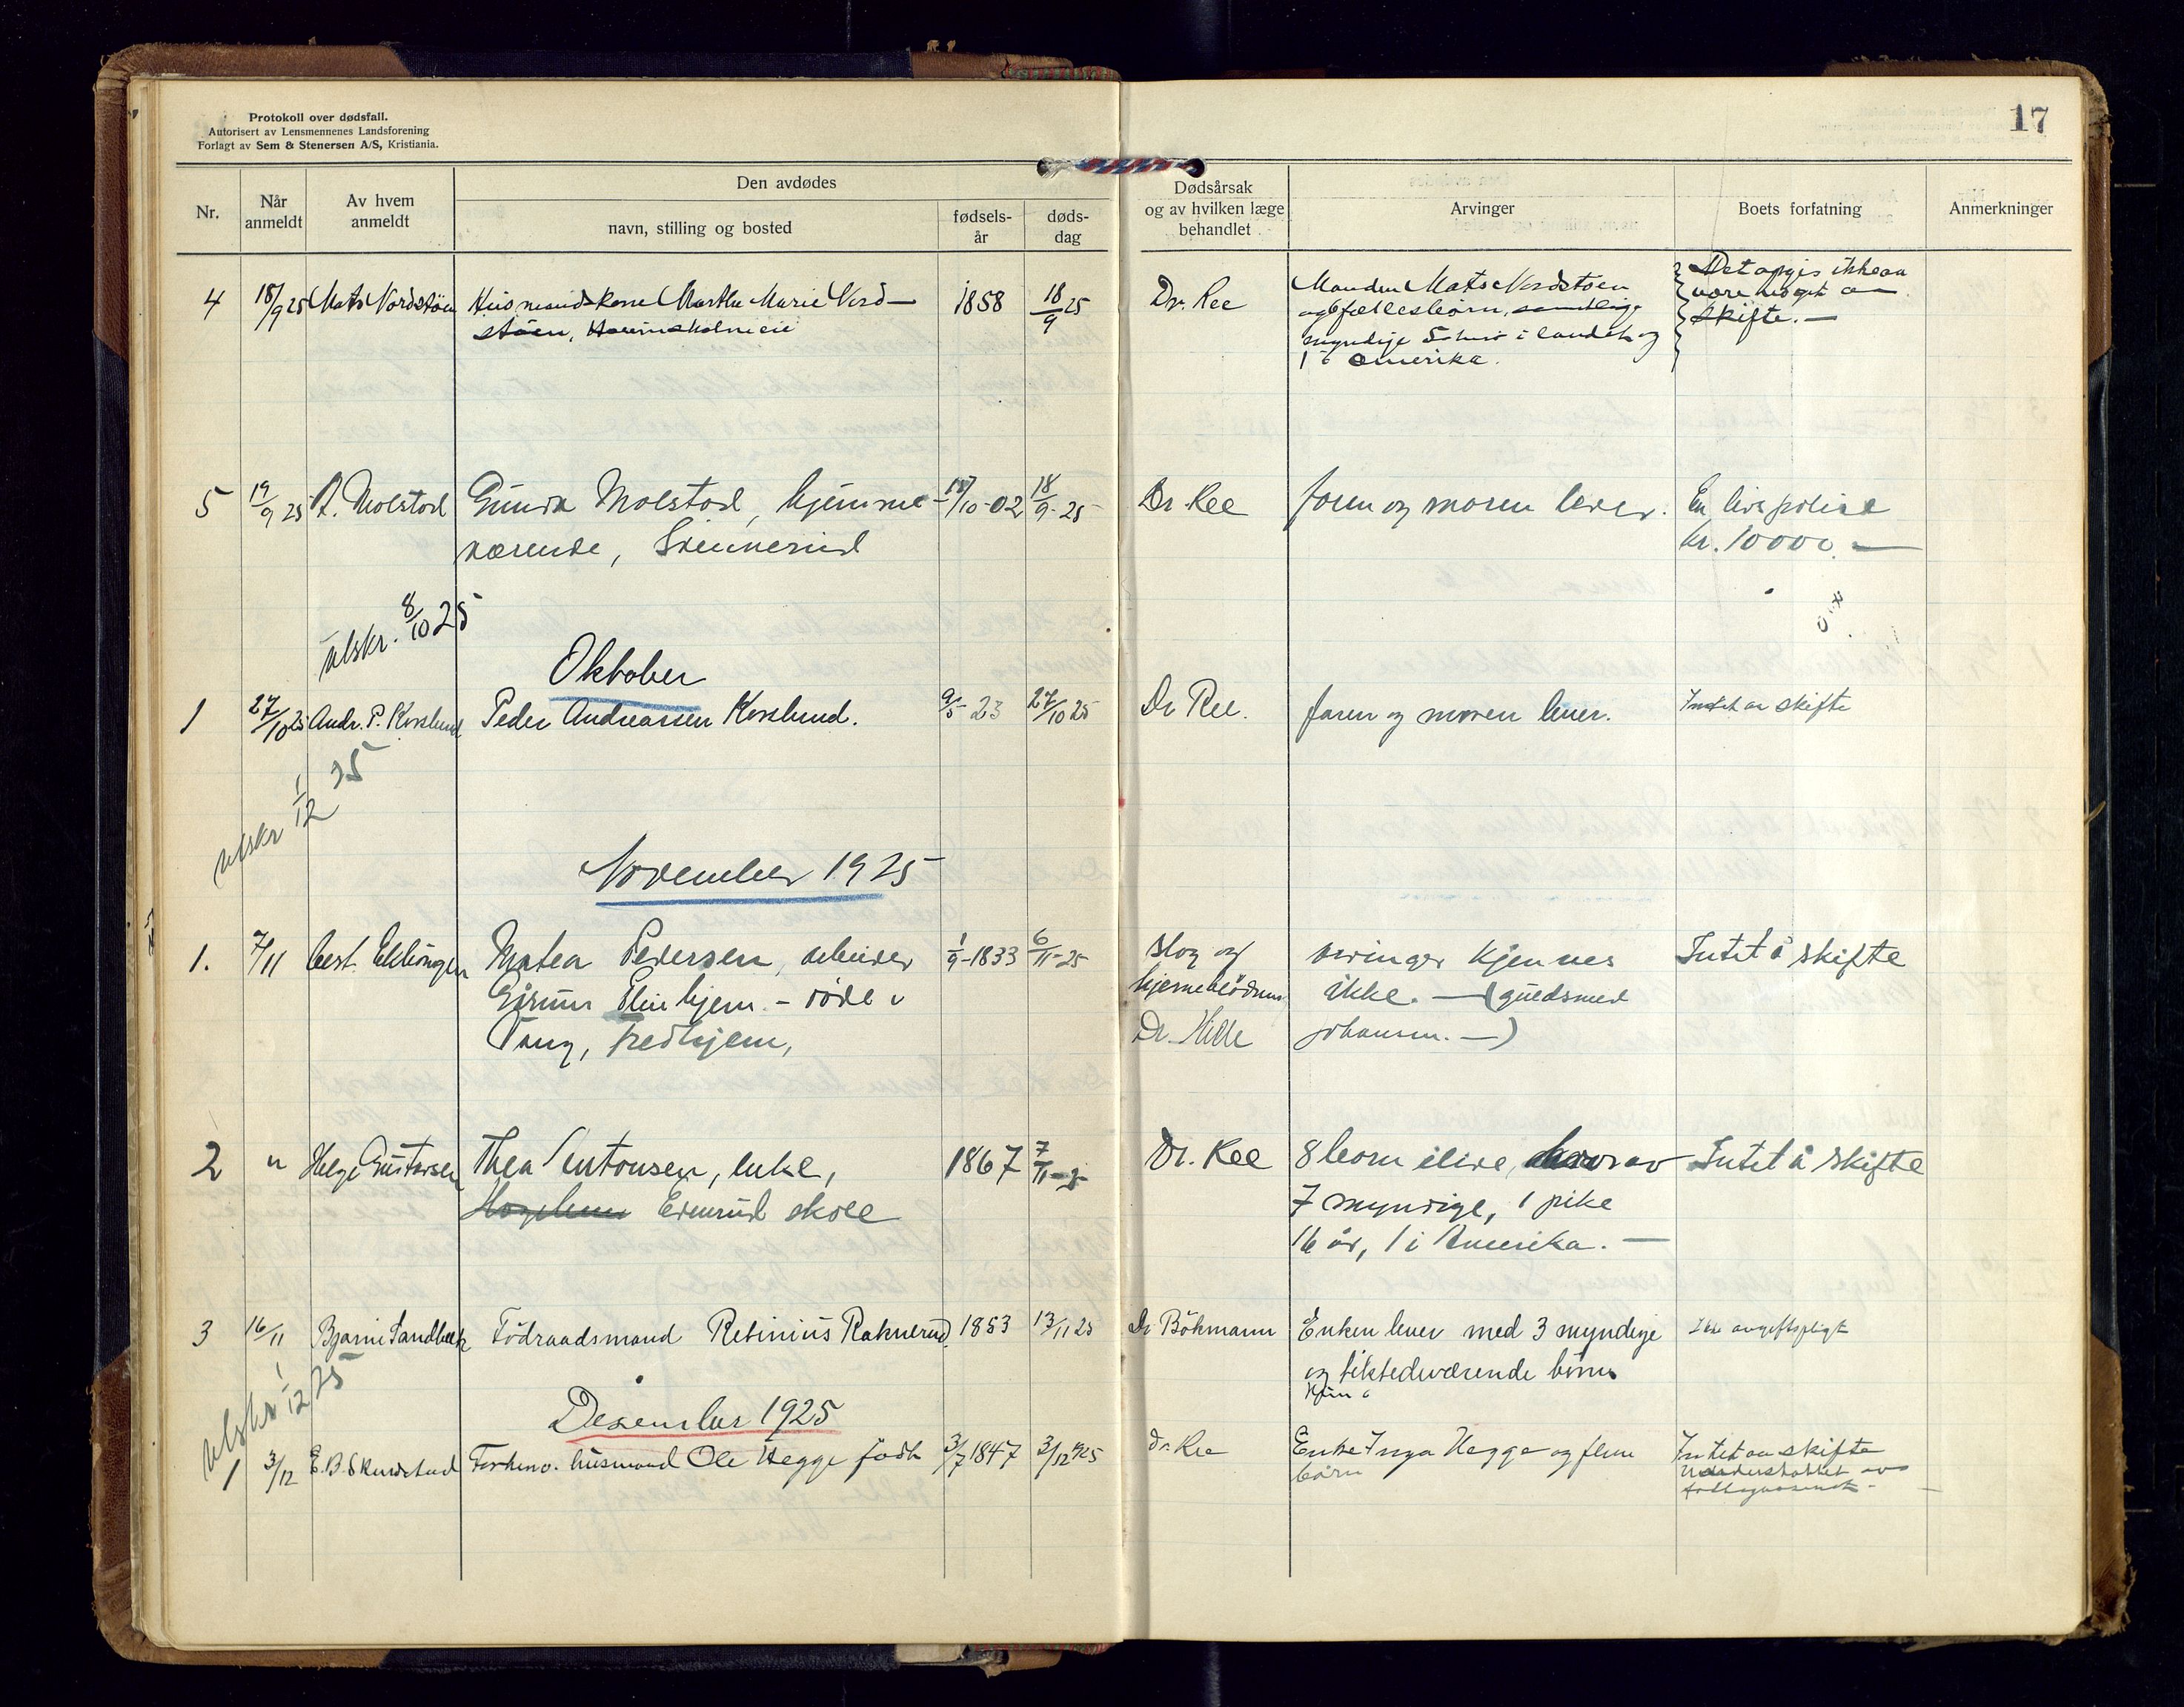 Protokoll over dødsfall.
Autorisert av Lensmennenes Landsforening
Forlagt av Sem & Stenersen A/S, Kristiania.
17
Nr.
Når anmeldt
Av hvem anmeldt
Den avdødes
navn, stilling og bosted
fødsels-
år
døds-
dag
Dødsårsak
og av hvilken læge
behandlet
Arvinger
Boets forfatning
Anmerkninger
4 18/9 25 Mats Nordstøen Husmandskone Marthe Marie Nord- 1858 18/9 25 Dr. Ree
støen,
Manden Mats Nordstøen
og 6 fællesbørn, samtlige
myndige 5 her i landet og
1 i Amerika.
Det opgis ikke aa
være noget aa
skifte. —
5 19/9 25 A. Molstad Gunda Molstad, hjemme- /10-02 18/9-25 Dr. Ree faren og moren lever. En livspolise
værende, kr. 10000. —
utskr. 8/10 25
Oktober
1 27/10 25 Andr. P. Korslund Peder Andreassen Korslund. 9/5 23 27/10 25 Dr Ree. faren og moren lever. Intet aa skifte
utskr 1/12 25
November 1925
1. 7/11 best. Matea Pedersen, 1/9-1833 6/11-25 slag og arvinger kjennes Intet å skifte
hjem. - døde i hjerneblødning ikke. — (guldsmed
Vang, fredhjem, Dr. Hille Johansen. —)
2 " Helge Gustavsen Thea Antonsen, enke, 1867 7/11-25 Dr. Ree 8 barn ilive, hvorav Intet å skifte
skole 7 myndige, 1 pike
16 år, 1 i Amerika. —
3 16/11 Bjarne Sandbæk Födraadsmand Retinius Raknerud. 1853 13/11 25 Dr Bökmann Enken lever med 3 myndige Ikke avgiftspligt
og tilstedeværende börn
utskr 1/12 25
Desember 1925
1 3/12 E. B. Skurdstad Forhenv. husmand Ole Hegge födt 3/7 1847 3/12 25 dr. Ree Enke Inga Hegge og flere Intet aa skifte
børn